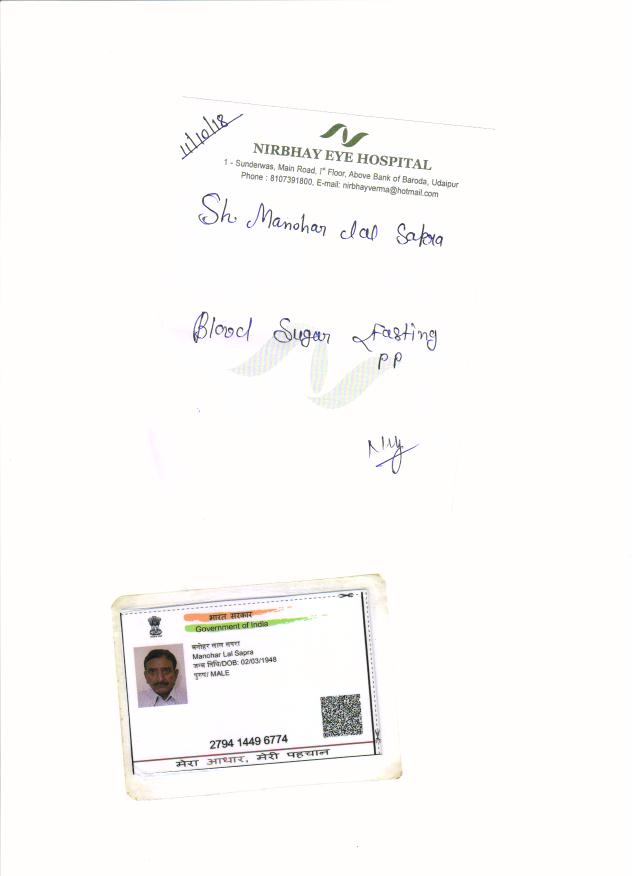 11/10/18
NIRBHAY EYE HOSPITAL
1 - Sunderwas, Main Road, Iˢᵗ Floor, Above Bank of Baroda, Udaipur
Phone : 8107391800, E-mail: nirbhayverma@hotmail.com
Sh. Manohar Lal Sapra
Blood Sugar Fasting
PP
भारत सरकार
Government of India
मनोहर लाल सपरा
Manohar Lal Sapra
जन्म तिथि/DOB: 02/03/1948
पुरुष/ MALE
2794 1449 6774
मेरा आधार, मेरी पहचान